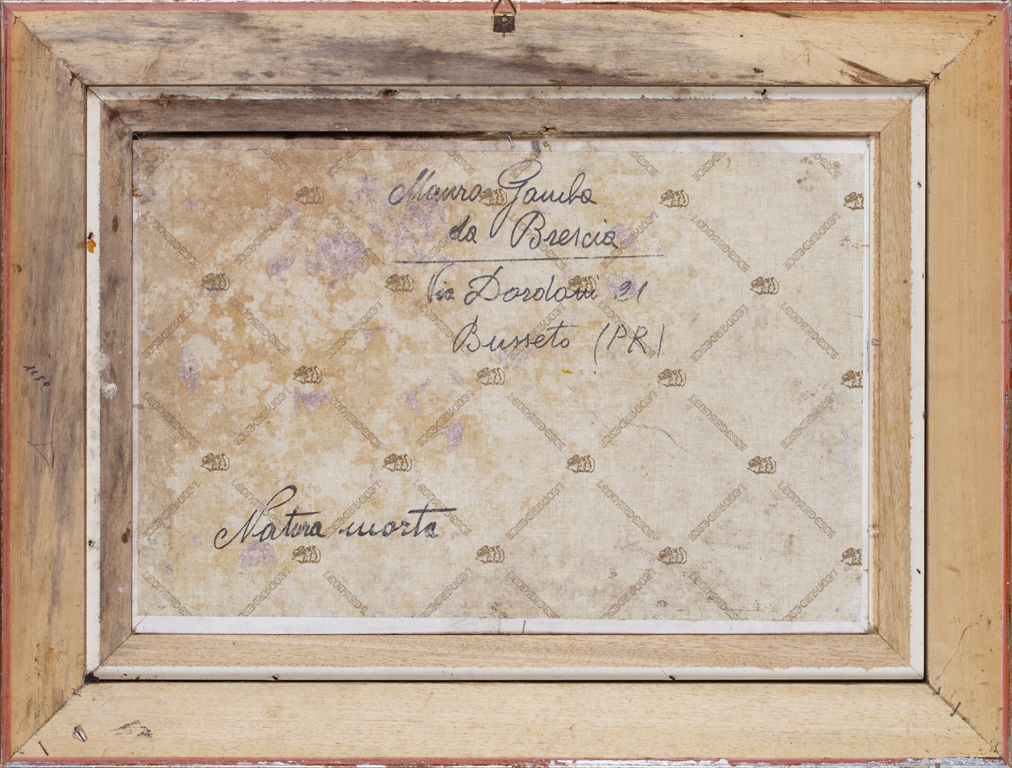 Mauro Gamba
da Brescia
Via Dordoni 21
Busseto (PR)
Natura morta